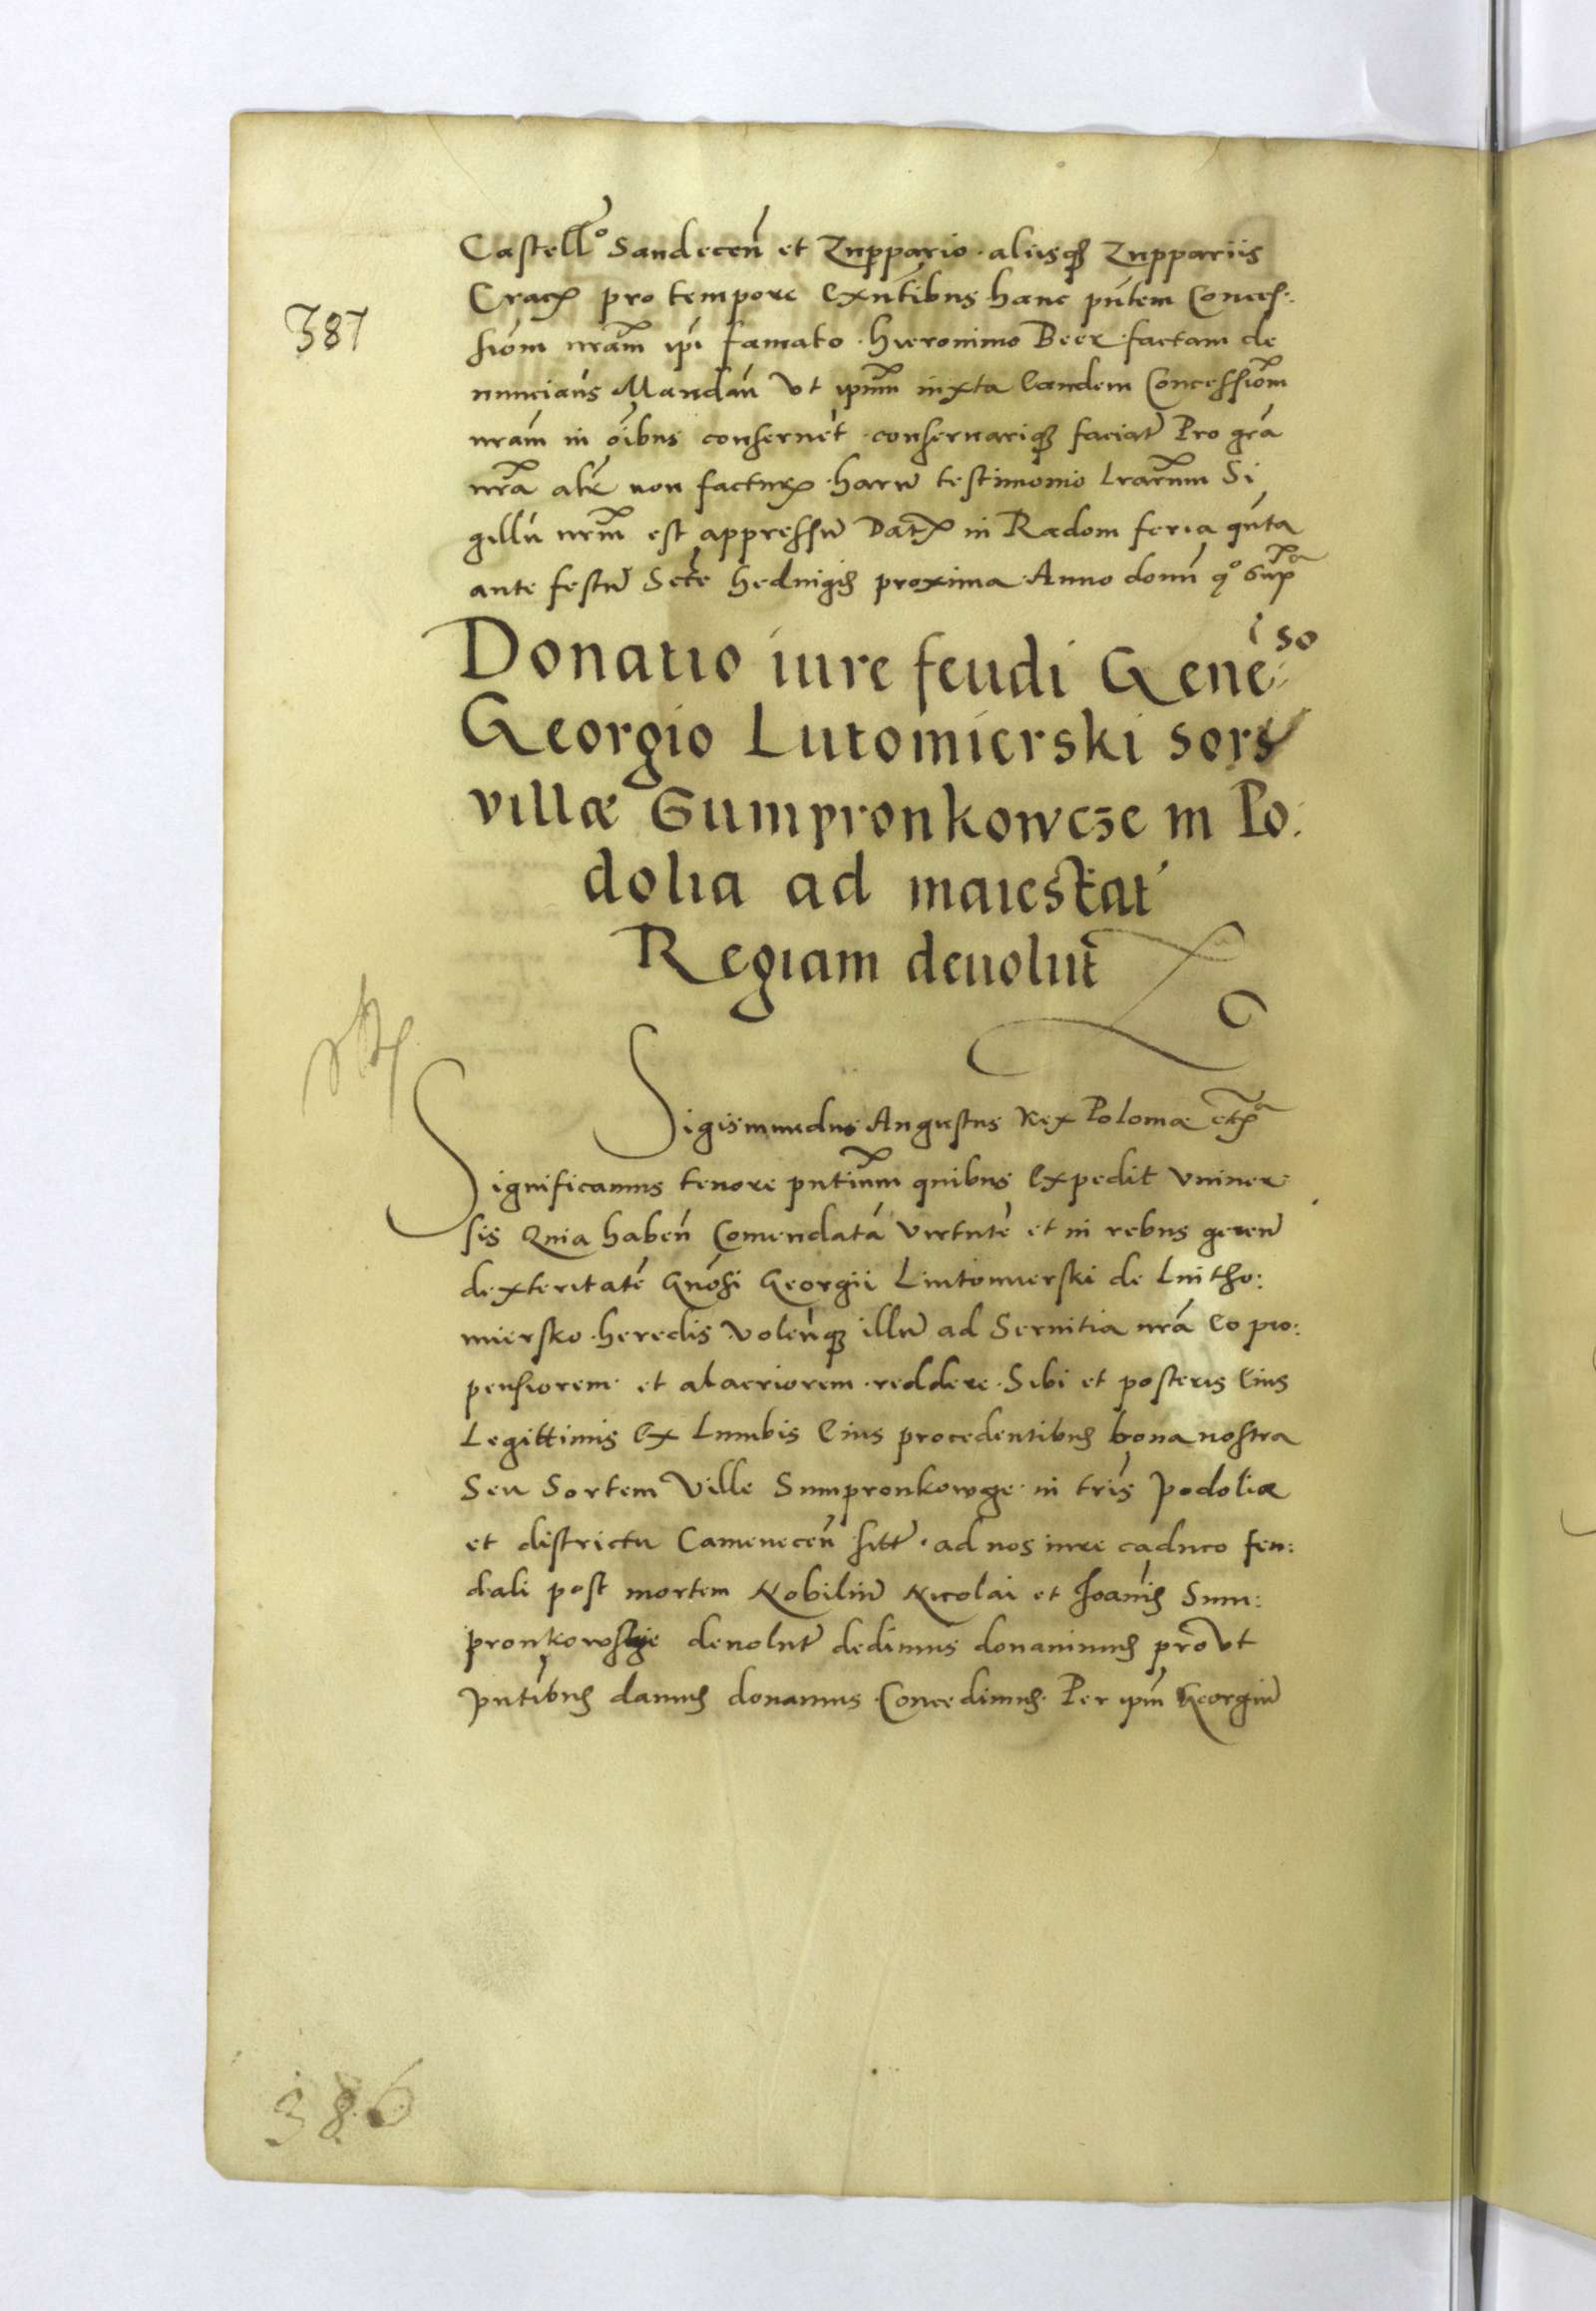 Castell° Sandecen̄ et Zuppario aliisq3 Zuppariis
387
Crac̄ pro tempore Exn̄tibus hanc pn̄tem Conces:
siōm nr̄am ip̄i famato Hieronimo Beer factam de
nuncian̄s Mandan̄ Vt ipm̄ iuxta Eandem Concessiōm
nr̄am in ōibus conseruet conseruariq3 faciat̄ Pro gr̄a
nr̄a alr̄ non factur̄ harū testimonio Lrarum Si
gillū nr̄m est appressū Dat̄ in Radom feria qūta
ante festū Sc̄te Heduigis proxima Anno domn̄ q° supr̄a
Donatio iure feudi Genēso
Georgio Lutomierski sors
villæ Sumpronkowcze in Po:
dolia ad maiestat̄
Regiam deuolut̄
Sigismundus Augustus Rex Poloniæ etc̄a
Significamus tenore pn̄tium quibus Expedit vniuer
sis Quia haben̄ Comendatā virtutē et in rebus geren̄
dexteritatē Gn̄osi Georgii Liutomierski de Luitho:
miersko heredis Volen̄q3 illū ad Seruitia nr̄a Eo pro:
pensiorem et alacriorem reddere Sibi et posteris Eius
Legittimis Ex Lumbis Eius procedentibus bona nostra
Seu Sortem Ville Sumpronkowge in tr̄is Podoliæ
et districtu Camenecen̄ sitt̄ ad nos iure caduco feu:
dali post mortem Nobiliū Nicolai et Joan̄is Sum:
pronkowskie deuolut̄ dedimus donauimus prōVt
pn̄tibus damus donamus Concedimus Per ipm̄ Georgiū
386